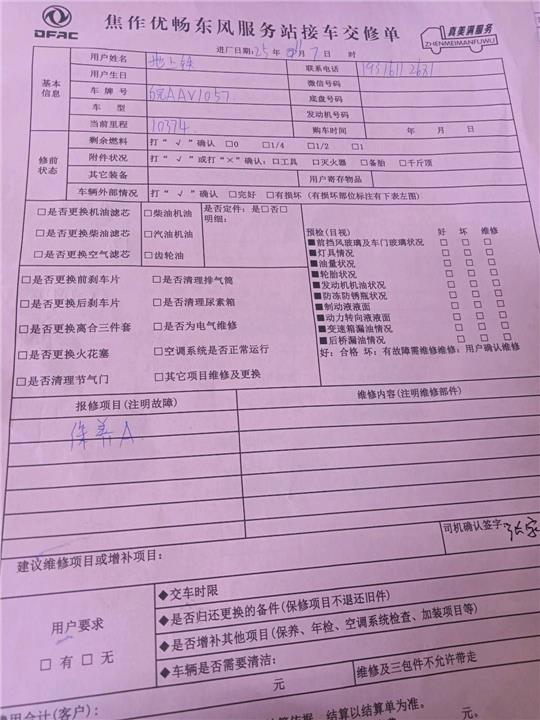 DFAC
焦作优畅东风服务站接车交修单
真美满服务
ZHENMEIMANFUWU
进厂日期:25年 11月7日 时
基本信息
用户姓名 地上铁 联系电话
用户生日 微信号码
车牌号 底盘号码
车型 发动机号码
当前里程 10374 购车时间 年 月 日
修前状态
剩余燃料 打“√”确认 □0 □1/4 □1/2 □1
附件状况 打“√”或打“×”确认:□工具 □灭火器 □备胎 □千斤顶
其它装备 用户寄存物品
车辆外部情况 打“√”确认 □完好 □有损坏(有损坏部位标注有下表左图)
□是否更换机油滤芯 □柴油机油 是否定件:是□否□
明细:
□是否更换柴油滤芯 □汽油机油
□是否更换空气滤芯 □齿轮油
预检(目视) 好 坏 维修
■前挡风玻璃及车门玻璃状况 □ □ □
■灯具情况 □ □ □
■油量状况 □ □ □
■轮胎状况 □ □ □
■发动机机油状况 □ □ □
■防冻防锈瓶状况 □ □ □
■制动液液面 □ □ □
■动力转向液液面 □ □ □
■变速箱漏油情况 □ □ □
■后桥漏油情况 □ □ □
好:合格 坏:有故障需维修维修:用户确认维修
□是否更换前刹车片 □是否清理排气筒
□是否更换后刹车片 □是否清理尿素箱
□是否更换离合三件套 □是否为电气维修
□是否更换火花塞 □空调系统是否正常运行
□是否清理节气门 □其它项目维修及更换
报修项目(注明故障) 维修内容(注明维修部件)
保养A
司机确认签字:
建议维修项目或增补项目:
用户要求
□有 □无
◆交车时限
◆是否归还更换的备件(保修项目不退还旧件)
◆是否增补其他项目(保养、年检、空调系统检查、加装项目等)
◆车辆是否需要清洁: 维修及三包件不允许带走
元
费用合计(客户):
结算以结算单为准。
元。